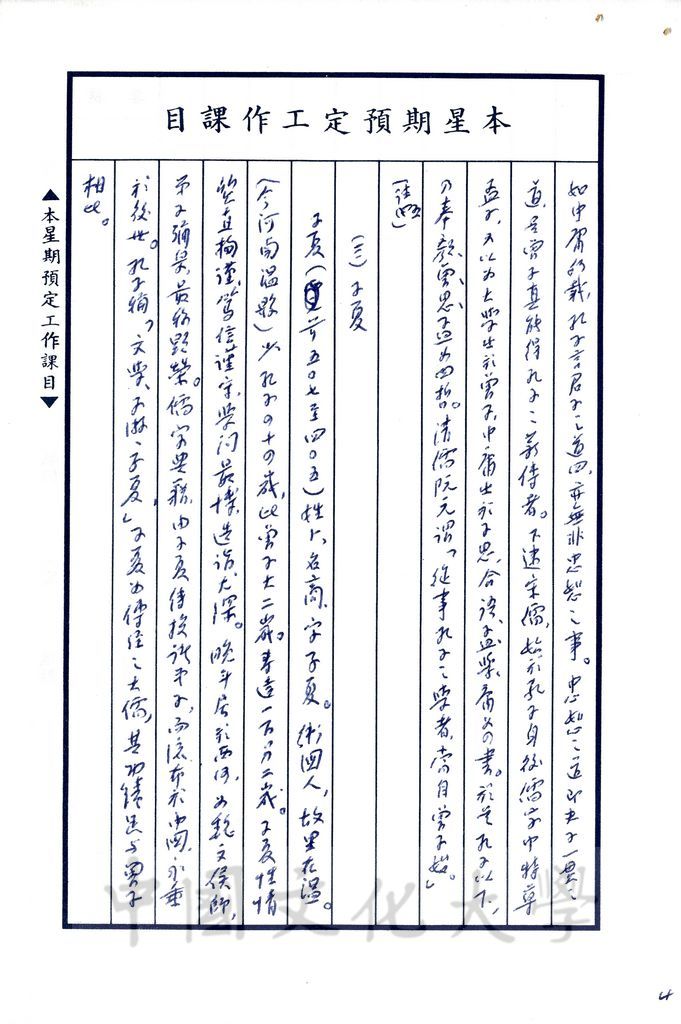 本星期預定工作課目
如中庸所載，孔子言君子之道四，亦無非忠恕之事。忠恕之道即夫子一貫之
道，是曾子真能得孔子之薪傳者。下逮宋儒，始於孔子身後儒家中特尊
孟子，又以為大學出於曾子，中庸出於子思，合語、孟、學、庸為四書。於是孔子以下，
乃奉顏、曾、思、孟為四哲。清儒阮元謂「從事孔子之學者，當自曾子始。」
（註五）
（三）子夏
子夏（前五０七至四０五）姓卜，名商，字子夏。衛國人，故里在溫。
（今河南溫縣）少孔子四十四歲，比曾子大二歲。壽達一百另二歲。子夏性情
質直拘謹，篤信謹守，學問最博，造詣尤深。晚年居於西河，為魏文侯師，
弟子彌眾，最稱顯榮。儒家典籍，由子夏傳授諸弟子，而流布於中國，永垂
於後世。孔子稱「文學，子游、子夏」子夏為傳經之大儒，其功績足與曾子
相比。
▲本星期預定工作課目▼
中國文化大學
4